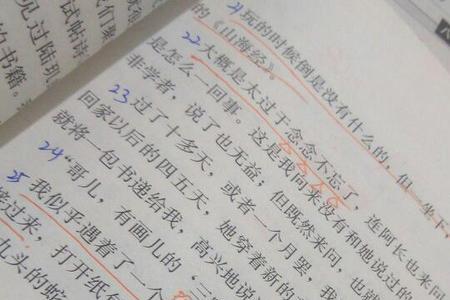 21 玩的时候倒是没有什么的，但一坐下
的《山海经》。
22 大概是太过于念念不忘了，连阿长也来问
是怎么一回事。这是我向来没有和她说过的
非学者，说了也无益；但既然来问，也就
23 过了十多天，或者一个月罢，我
回家以后的四五天，她穿着新的
就将一包书递给我，高兴地说
24 “哥儿，有画儿的‘三
25 我似乎遇着了一个
接过来，打开纸
九头的蛇
见过陆玑
的书籍。
试帖诗
我们聚